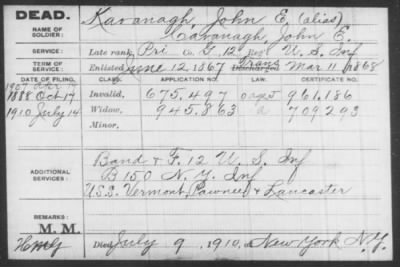 DEAD.
NAME OF SOLDIER:
Kavanagh, John E. (alias)
Cavanagh John E.
SERVICE:
Late rank, Pri Co. G, 12 Reg't U. S. Inf
TERM OF SERVICE:
Enlisted June 12, 1867 Discharged Trans Mar 11, 1868
DATE OF FILING. CLASS. APPLICATION NO. LAW. CERTIFICATE NO.
1907 Apr
1888 Oct 17 Invalid, 675.497 961.186
1910 July 14 Widow, 945.863 709293
Minor,
ADDITIONAL SERVICES:
Band & F. 12 U. S. Inf
B 150 N.Y. Inf
U.S.S. Vermont, Pawnee & Lancaster
REMARKS:
M. M.
Died July 9, 1910, at New York N.Y.